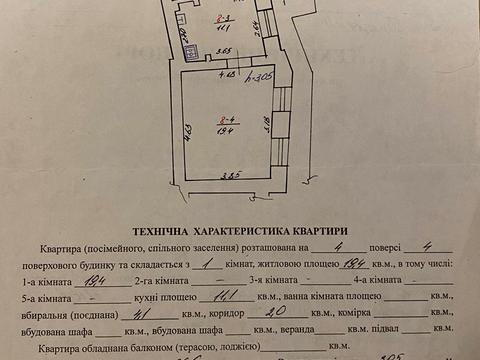 8-3
11.1
2.64
3.65
4.13
h-3.05
8-4
19.4
4.63
5.18
3.85
ТЕХНІЧНА ХАРАКТЕРИСТИКА КВАРТИРИ
Квартира (посімейного, спільного заселення) розташована на 4 поверсі 4
поверхового будинку та складається з 1 кімнат, житловою площею 19,4 кв.м., в тому числі:
1-а кімната 19,4 2-га кімната – 3-я кімната – 4-а кімната –
5-а кімната – кухні площею 11,1 кв.м., ванна кімната площею кв.м.,
вбиральня (поєднана) 4,1 кв.м., коридор 2,0 кв.м., комірка кв.м.,
вбудована шафа кв.м., вбудована шафа кв.м., веранда кв.м., підвал кв.м.
Квартира обладнана балконом (терасою, лоджією) кв.м.